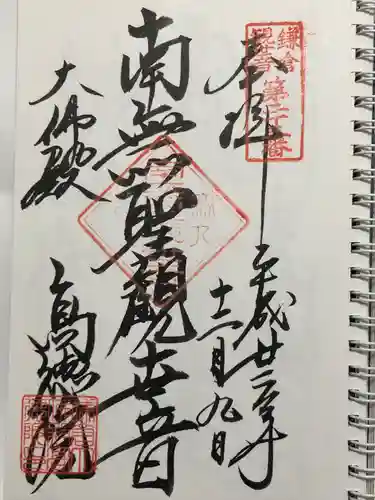 鎌倉
観音第二十三番
奉拝
平成廿二年
十二月九日
南無聖観世音
大佛殿
高徳院